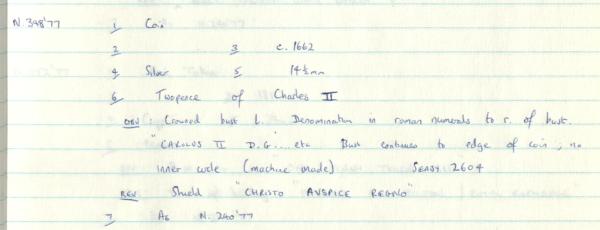 N.348'77 1 Coin
2 3 c. 1662
4 Silver 5 14½mm
6 Twopence of Charles II
OBV: Crowned bust l. Denomination in roman numerals to r. of bust.
"CAROLUS II D.G".... etc Bust continues to edge of coin; no
inner circle (machine made) SEABY 2604
REV Shield "CHRISTO AVSPICE REGNO"
7 As N.240'77